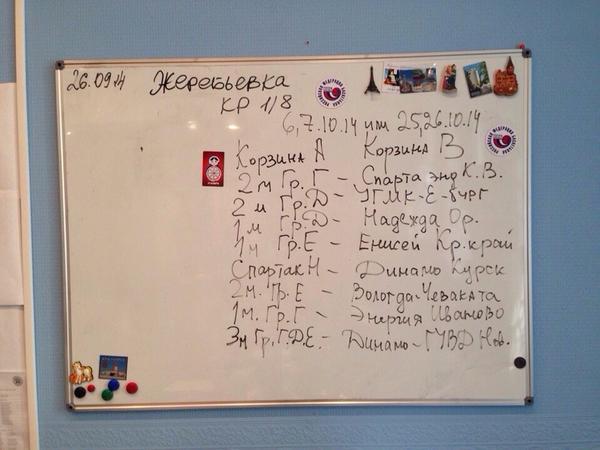 26.09.14 Жеребьевка
КР 1/8
6,7.10.14 или 25,26.10.14
Корзина А Корзина В
2 м Гр. Г – Спарта энд К.В.
2 м Гр. Д – УГМК-Е-бург
1м Гр. Д – Надежда Ор.
1м Гр. Е – Енисей Кр.край
Спартак Н – Динамо Курск
2м. Гр. Е – Вологда-Чеваката
1м. Гр. Г – Энергия Иваново
3м Гр. Г.Д.Е. – Динамо-ГУВД Нов.